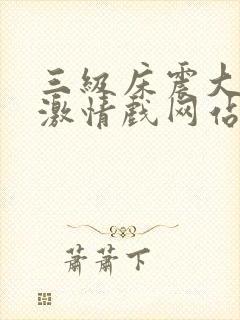 三級床震大
激情戲网佔
蕭蕭下